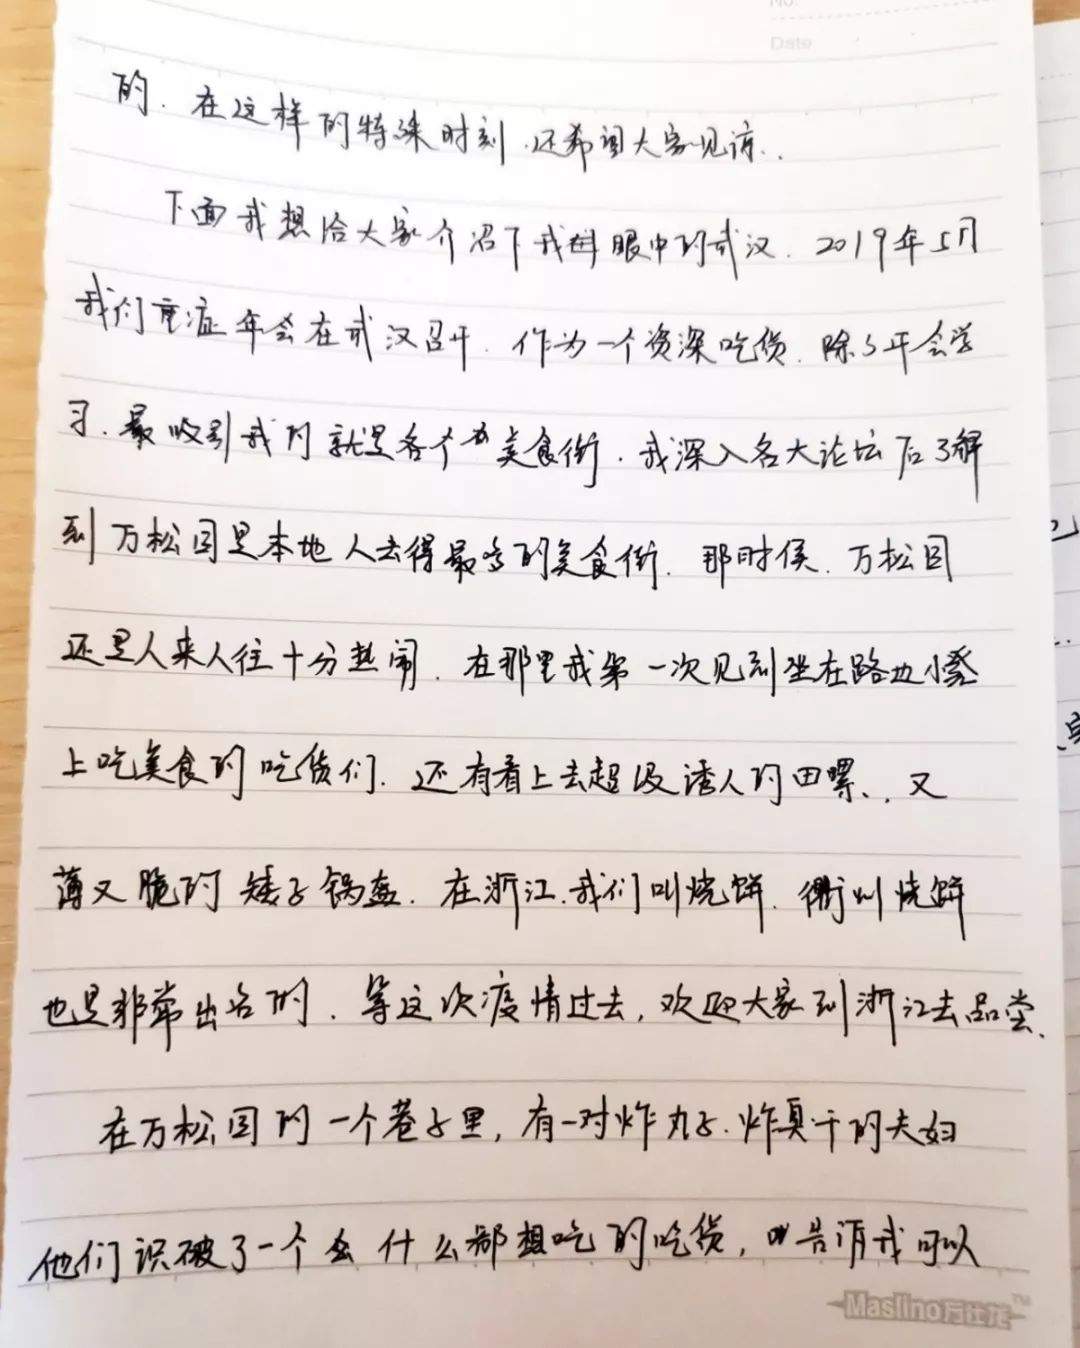 No.
Date
的.在这样的特殊时刻.还希望大家见谅..
下面我想给大家介绍下我眼中的武汉.2019年5月
我们重症年会在武汉召开.作为一个资深吃货.除了年会学
习.最吸引我的就是各个美食街.我深入各大论坛后了解
到万松园是本地人去得最多的美食街.那时候.万松园
还是人来人往十分热闹.在那里我第一次见到坐在路边小凳
上吃美食的吃货们.还有看上去超级诱人的田螺、,又
薄又脆的矮子锅盔.在浙江.我们叫烧饼.衢州烧饼
也是非常出名的.等这次疫情过去,欢迎大家到浙江去品尝.
在万松园的一个巷子里,有一对炸丸子.炸夹干的夫妇
他们识破了一个什么都想吃的吃货,告诉我可以
Maslino万仕龙